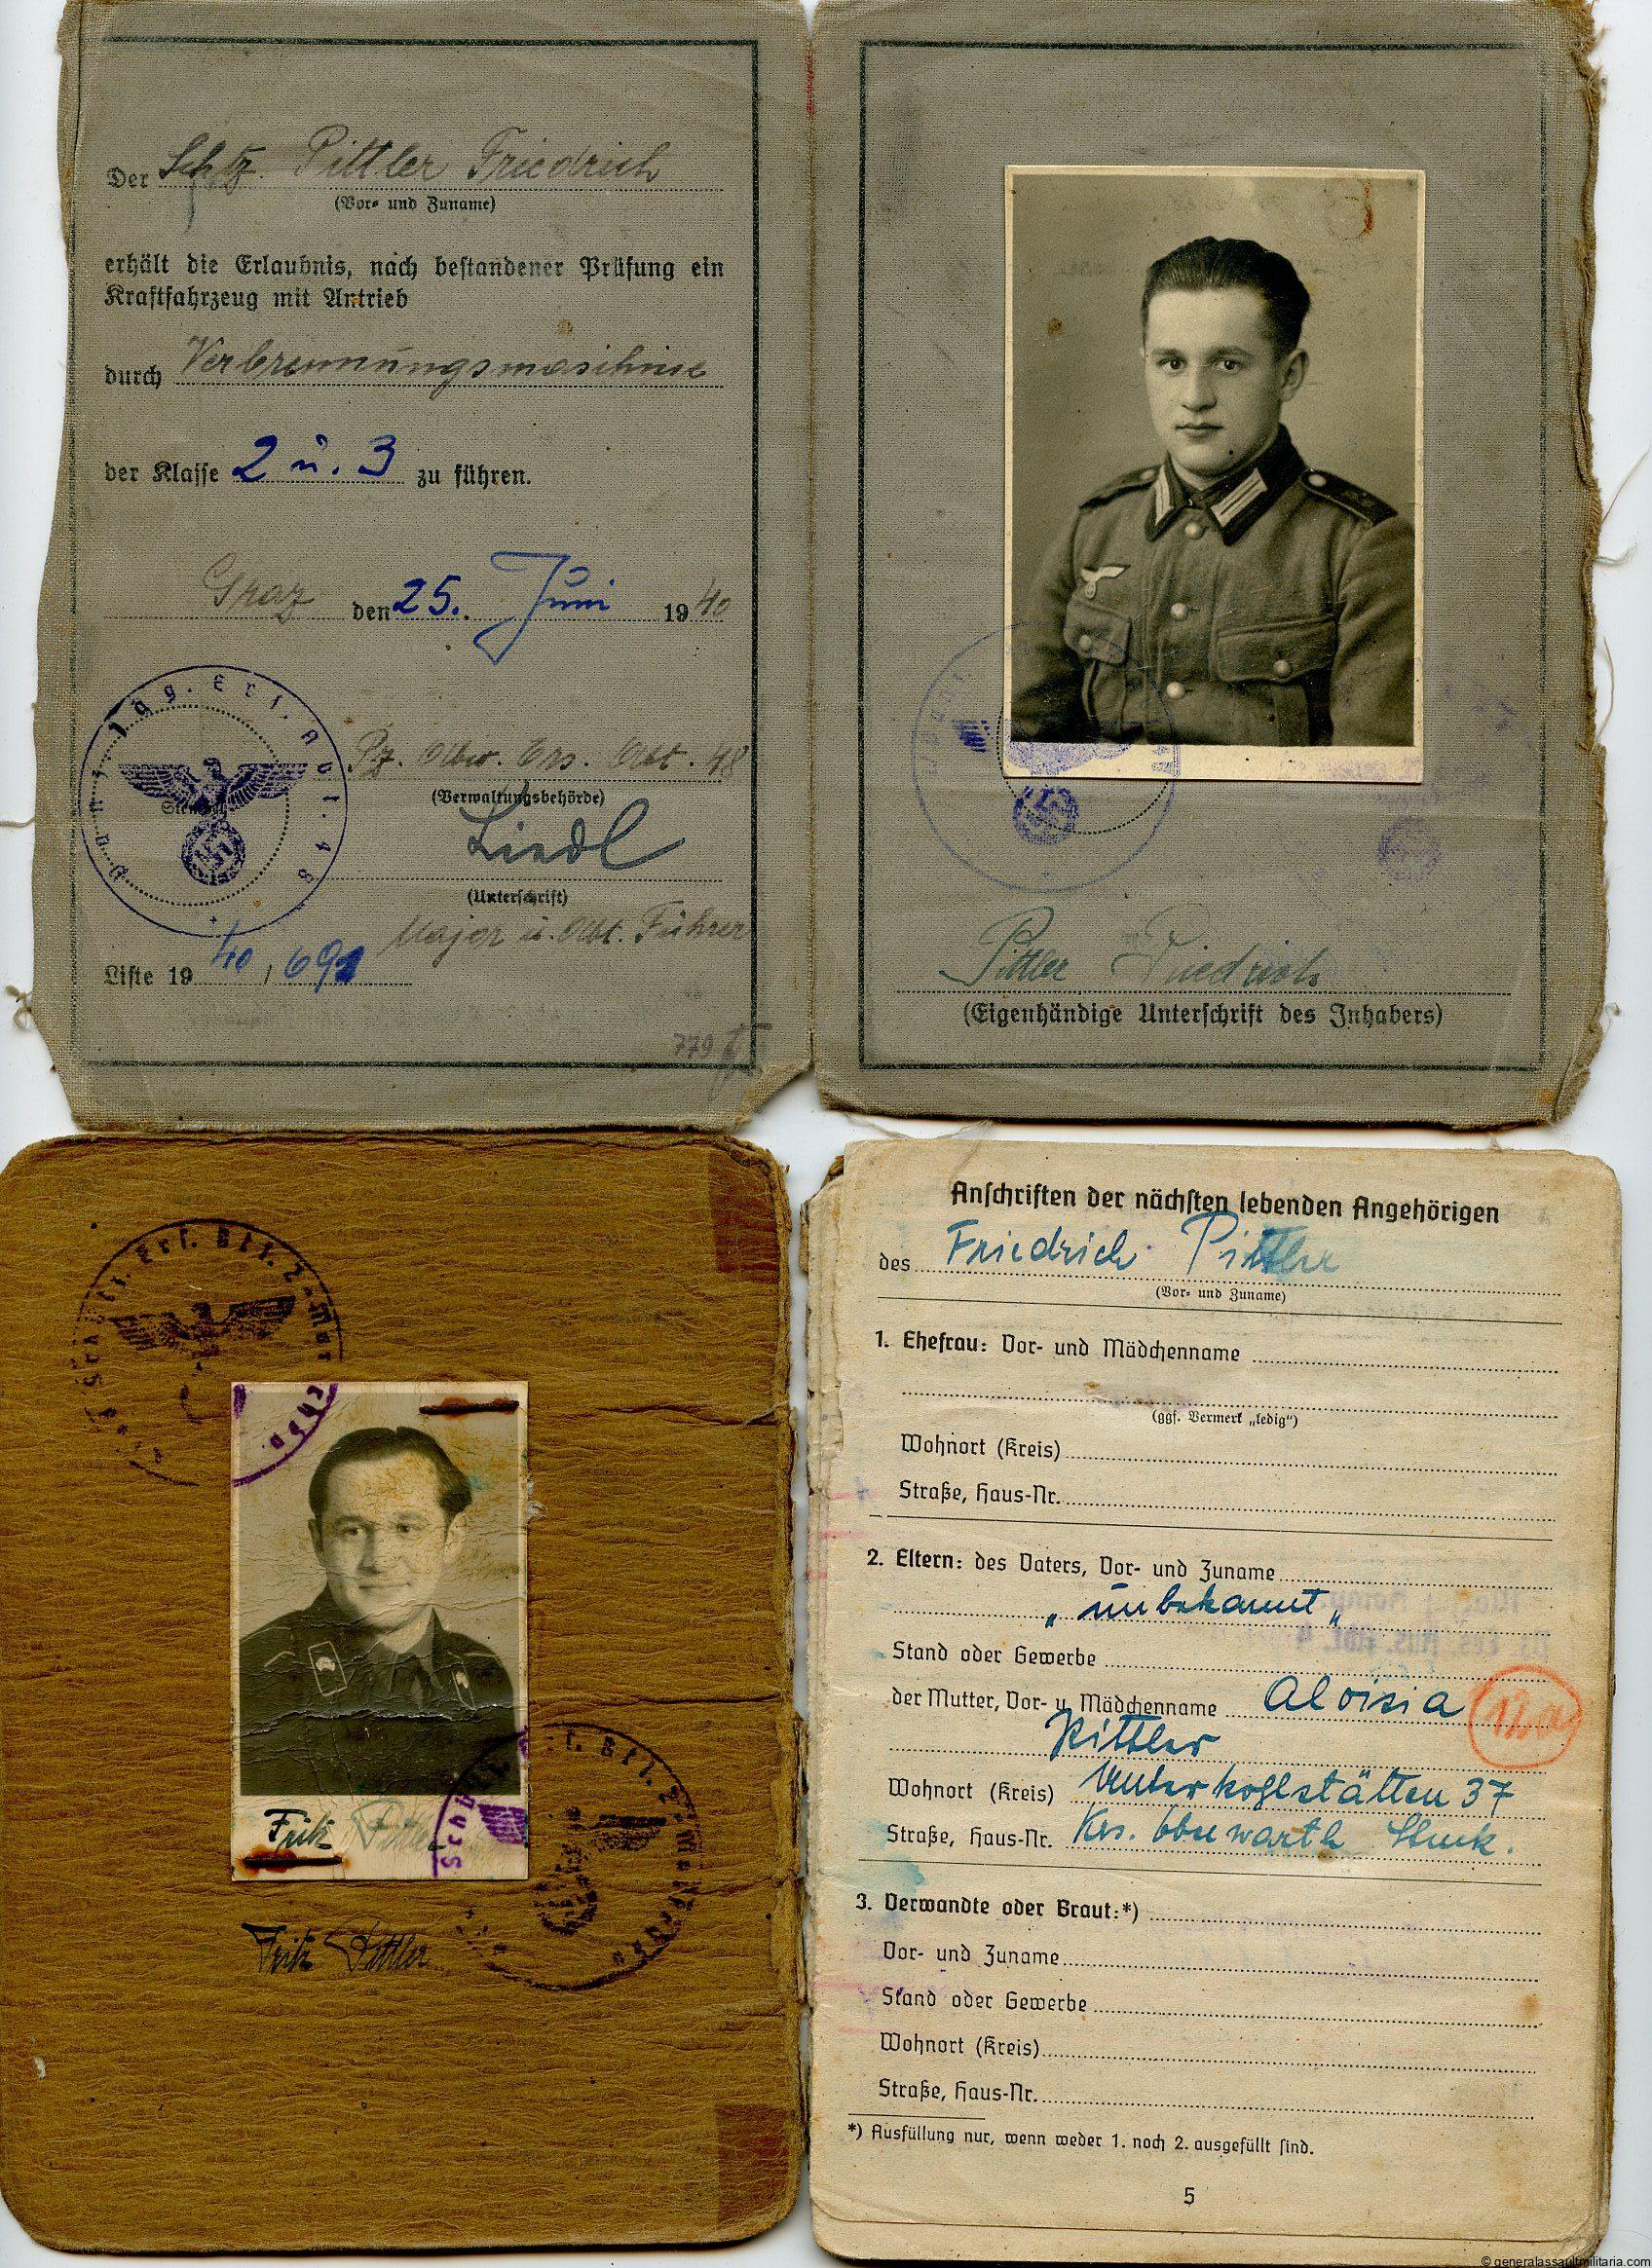 Der Schtz. Pittler Friedrich
(Vor- und Zuname)
erhält die Erlaubnis, nach bestandener Prüfung ein
Kraftfahrzeug mit Antrieb
durch Verbrennungsmaschine
der Klasse 2 u. 3 zu führen.
Graz den 25. Juni 1940
Panz. Jäg. Ers. Abt. 48
Stempel
Pz. Abw. Ers. Abt. 48
(Verwaltungsbehörde)
Liedl
(Unterschrift)
Major u. Abt. Führer
Liste 1940 / 691
779
Pittler Friedrich
(Eigenhändige Unterschrift des Inhabers)
Ers. Btl.
Fritz Pittler
Fritz Pittler
Anschriften der nächsten lebenden Angehörigen
des Friedrich Pittler
(Vor- und Zuname)
1. Ehefrau: Vor- und Mädchenname
(ggf. Vermerk „ledig“)
Wohnort (Kreis)
Straße, Haus-Nr.
2. Eltern: des Vaters, Vor- und Zuname
„unbekannt“
Stand oder Gewerbe
der Mutter, Vor- u. Mädchenname Aloisia
Pittler
Wohnort (Kreis) Unterkohlstätten 37
Straße, Haus-Nr. Krs. Oberwarth Stmk.
3. Verwandte oder Braut:*)
Vor- und Zuname
Stand oder Gewerbe
Wohnort (Kreis)
Straße, Haus-Nr.
*) Ausfüllung nur, wenn weder 1. noch 2. ausgefüllt sind.
5
© generalassaultmilitaria.com